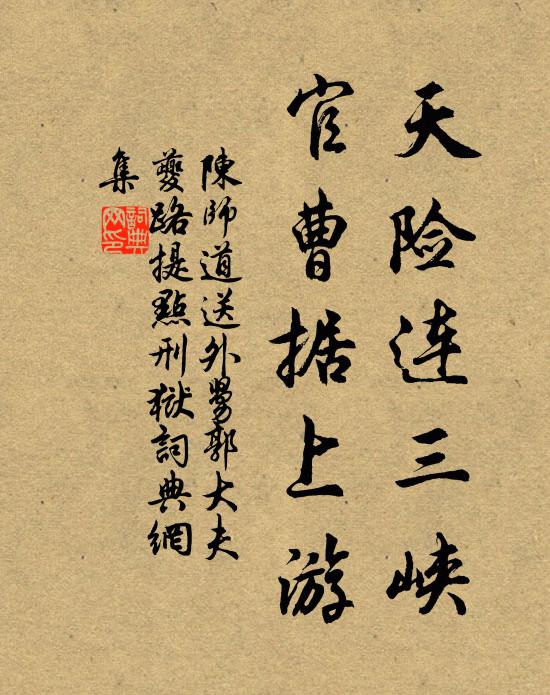 天险连三峡
官曹据上游
陳師道送外舅郭大夫
夔路提點刑獄詞典網
集
詞典网印